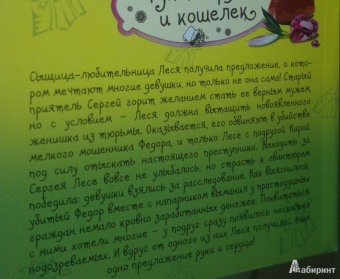 и кошелек
Сыщица-любительница Леся получила предложение, о кото-
ром мечтают многие девушки, но только не она сама! Старый
приятель Сергей горит желанием стать ее верным мужем
но с условием – Леся должна вытащить новоявленного
женишка из тюрьмы. Оказывается, его обвиняют в убийстве
мелкого мошенника Федора, и только Лесе с подругой Кирой
под силу отыскать настоящего преступника. Выходить за
Сергея Лесе вовсе не улыбалось, но страсть к авантюрам
победила: девушки взялись за расследование. Как выяснилось,
убитый Федор вместе с напарником выманил у простодушных
граждан немало кровно заработанных денежек. Поквитаться
с ними хотели многие – у подруг сразу появилось несколько
подозреваемых. И вдруг от одного из них Леся получила... еще
одно предложение руки и сердца!
Лабиринт